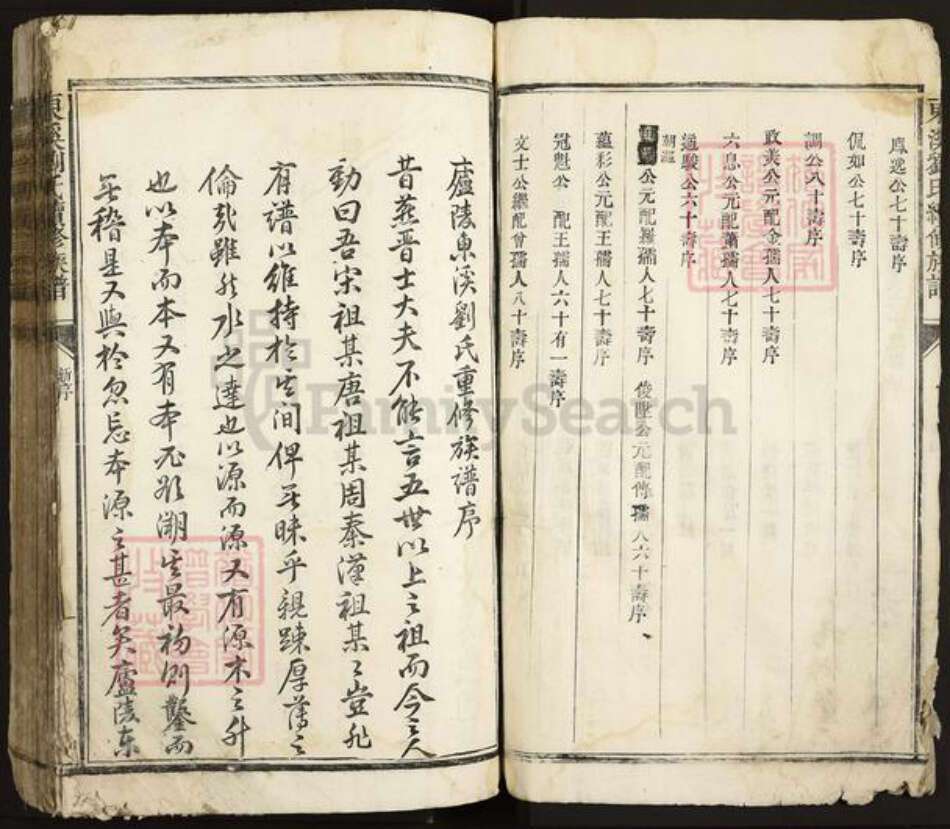 東溪劉氏續修族譜
鳳逸公七十壽序
侃如公七十壽序
調公八十壽序
政美公元配金孺人七十壽序
六息公元配蕭孺人七十壽序
通駿公六十壽序
朝瀛
公元配羅孺人七十壽序 俊墅公元配傅孺人六十壽序
蘊彩公元配王孺人七十壽序
冠魁公 配王孺人六十有一壽序
文士公繼配曾孺人八十壽序
廬陵東溪劉氏重修族譜序
昔燕晉士大夫不能言五世以上之祖而今之人
動曰吾宋祖某唐祖某周秦漢祖某々豈非
有譜以維持於其間俾無昧乎親踈厚薄之
倫哉雖然水之達也以源而源又有源木之升
也以本而本又有本必欲溯其最初則鑿而
無稽是又與於忽忘本源之甚者矣廬陵东
東溪劉氏續修族譜
新序
FamilySearch